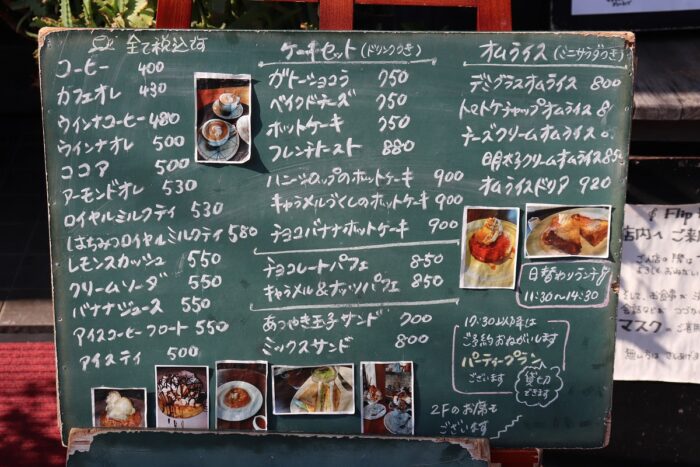 全て税込です
コーヒー 400
カフェオレ 430
ウインナコーヒー 480
ウインナオレ 500
ココア 500
アーモンドオレ 530
ロイヤルミルクティ 530
はちみつロイヤルミルクティ 580
レモンスカッシュ 550
クリームソーダ 550
バナナジュース 550
アイスコーヒーフロート 550
アイスティ 500
ケーキセット(ドリンクつき)
ガトーショコラ 750
ベイクドチーズ 750
ホットケーキ 750
フレンチトースト 880
ハニーシロップのホットケーキ 900
キャラメルづくしのホットケーキ 900
チョコバナナホットケーキ 900
チョコレートパフェ 850
キャラメル&ナッツパフェ 850
あつやき玉子サンド 700
ミックスサンド 800
オムライス(ミニサラダつき)
デミグラスオムライス 800
トマトケチャップオムライス 8
チーズクリームオムライス
明太子クリームオムライス 85
オムライスドリア 920
日替わりランチ
11:30~14:30
17:30以降は
ご予約おねがいします
パーティープラン
ございます
貸切できます
2Fのお席も
ございます
店内へ
マスク